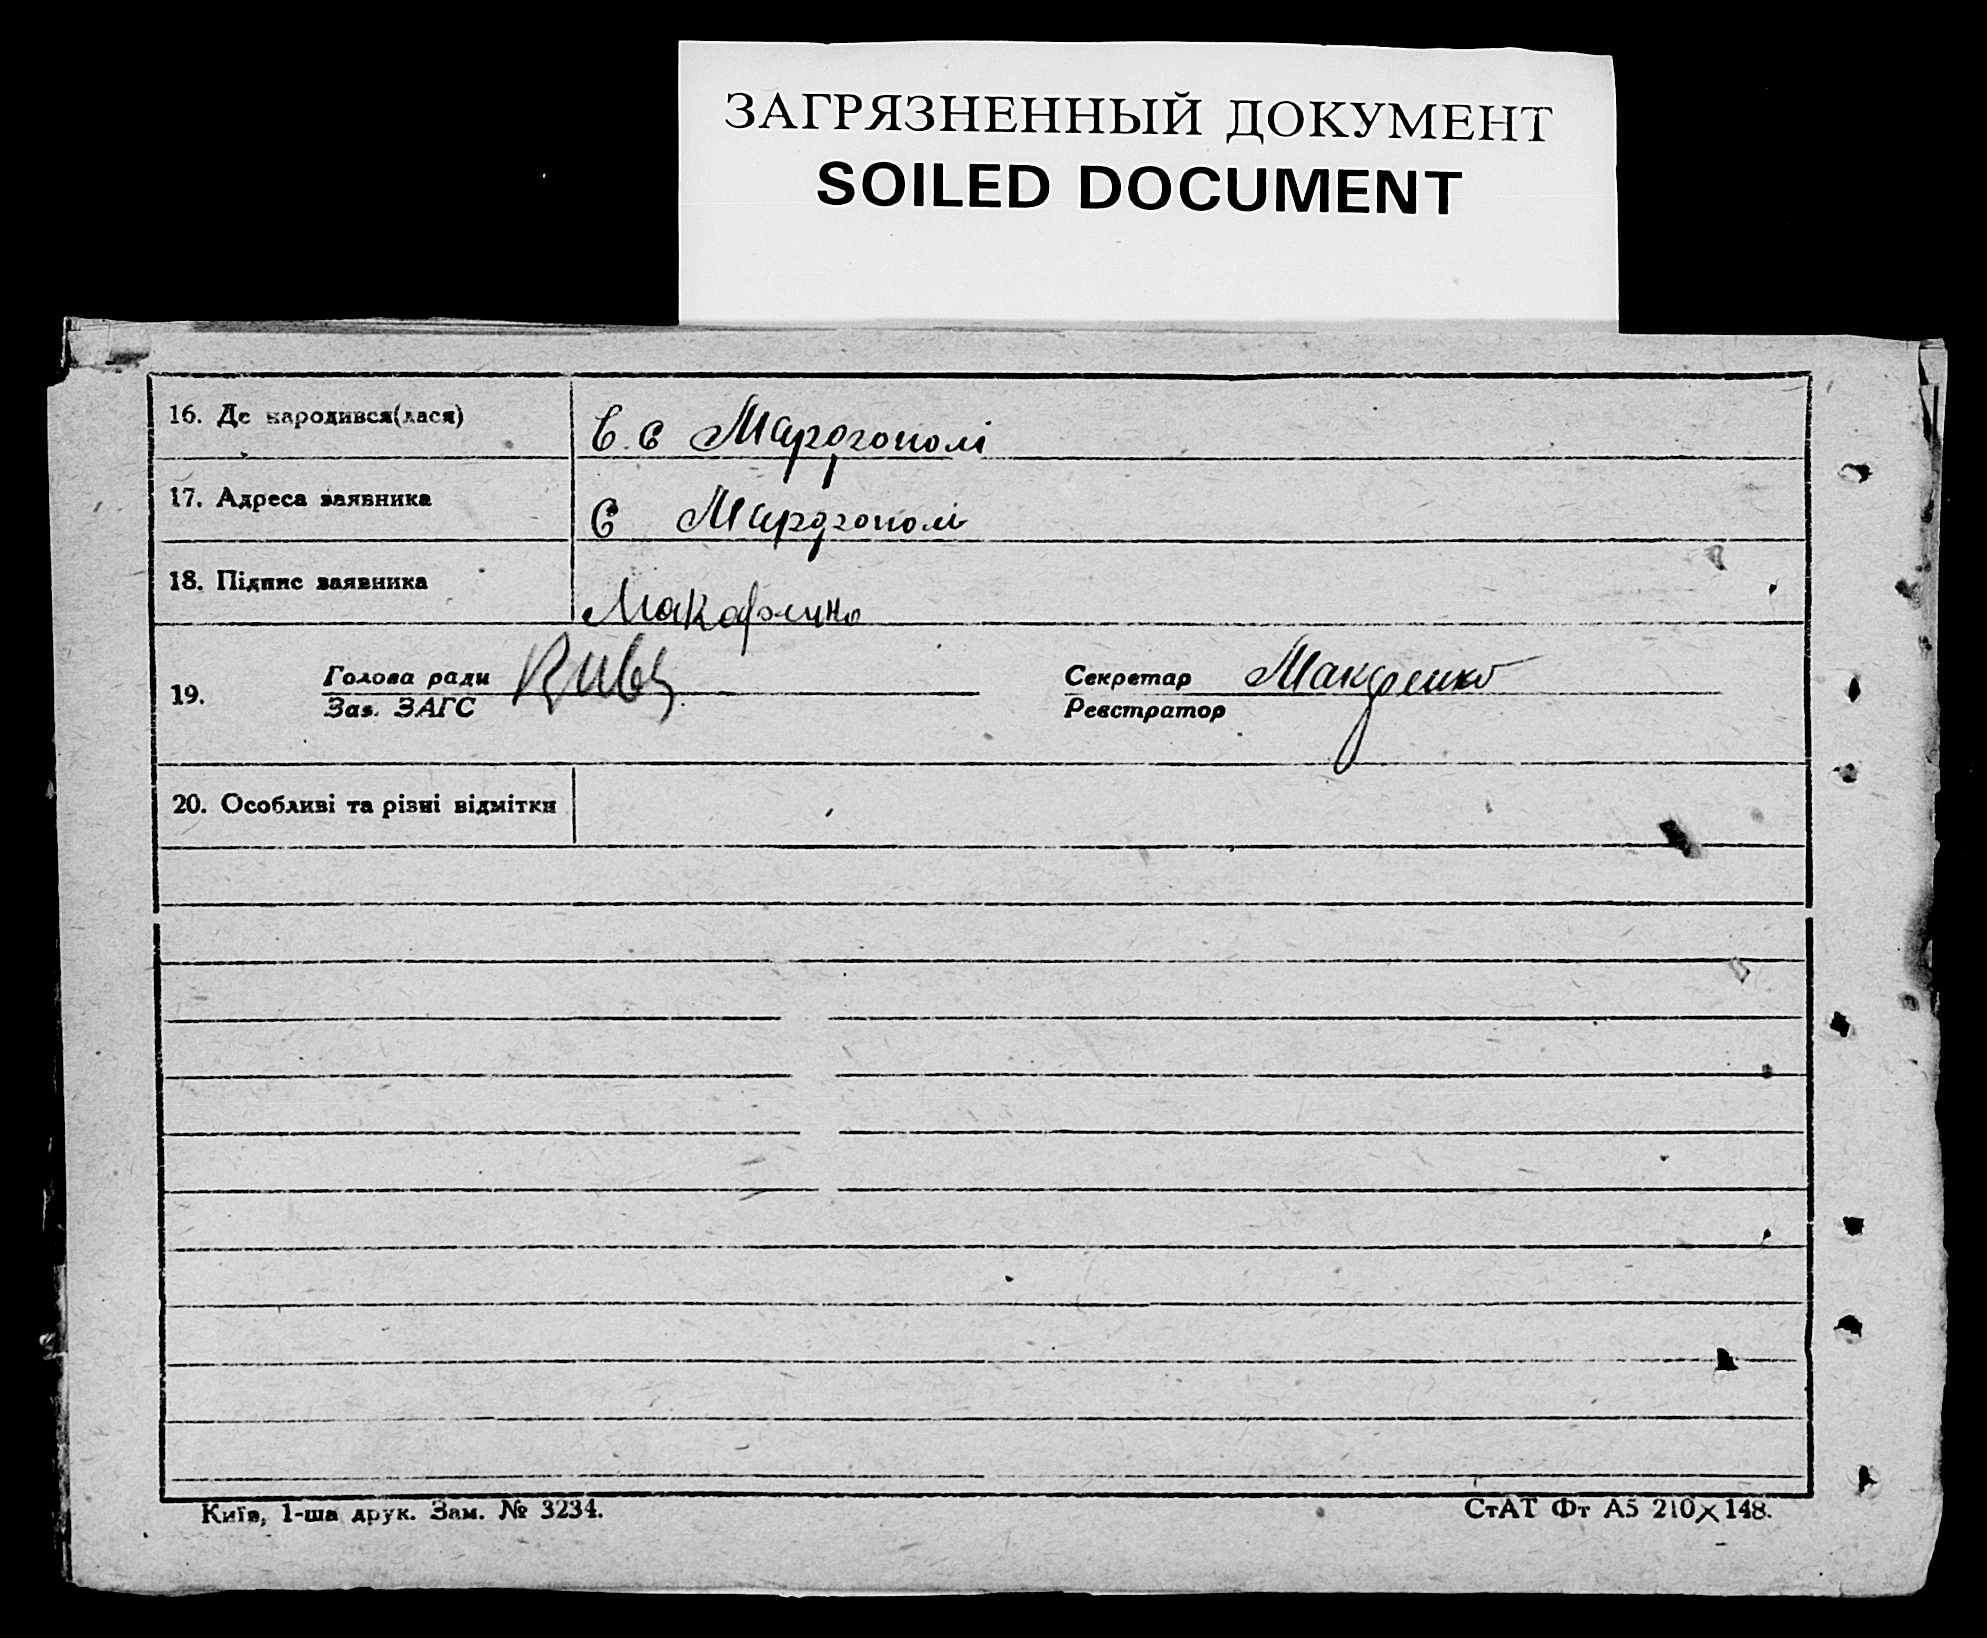 ЗАГРЯЗНЕННЫЙ ДОКУМЕНТ
SOILED DOCUMENT
16. Де народився(лася)
17. Адреса заявника
С
18. Підпис заявника
19. Голова ради Секретар
Зав. ЗАГС Реєстратор
20. Особливі та різні відмітки
Київ, 1-ша друк. Зам. № 3234. СтАТ Фт А5 210×148.